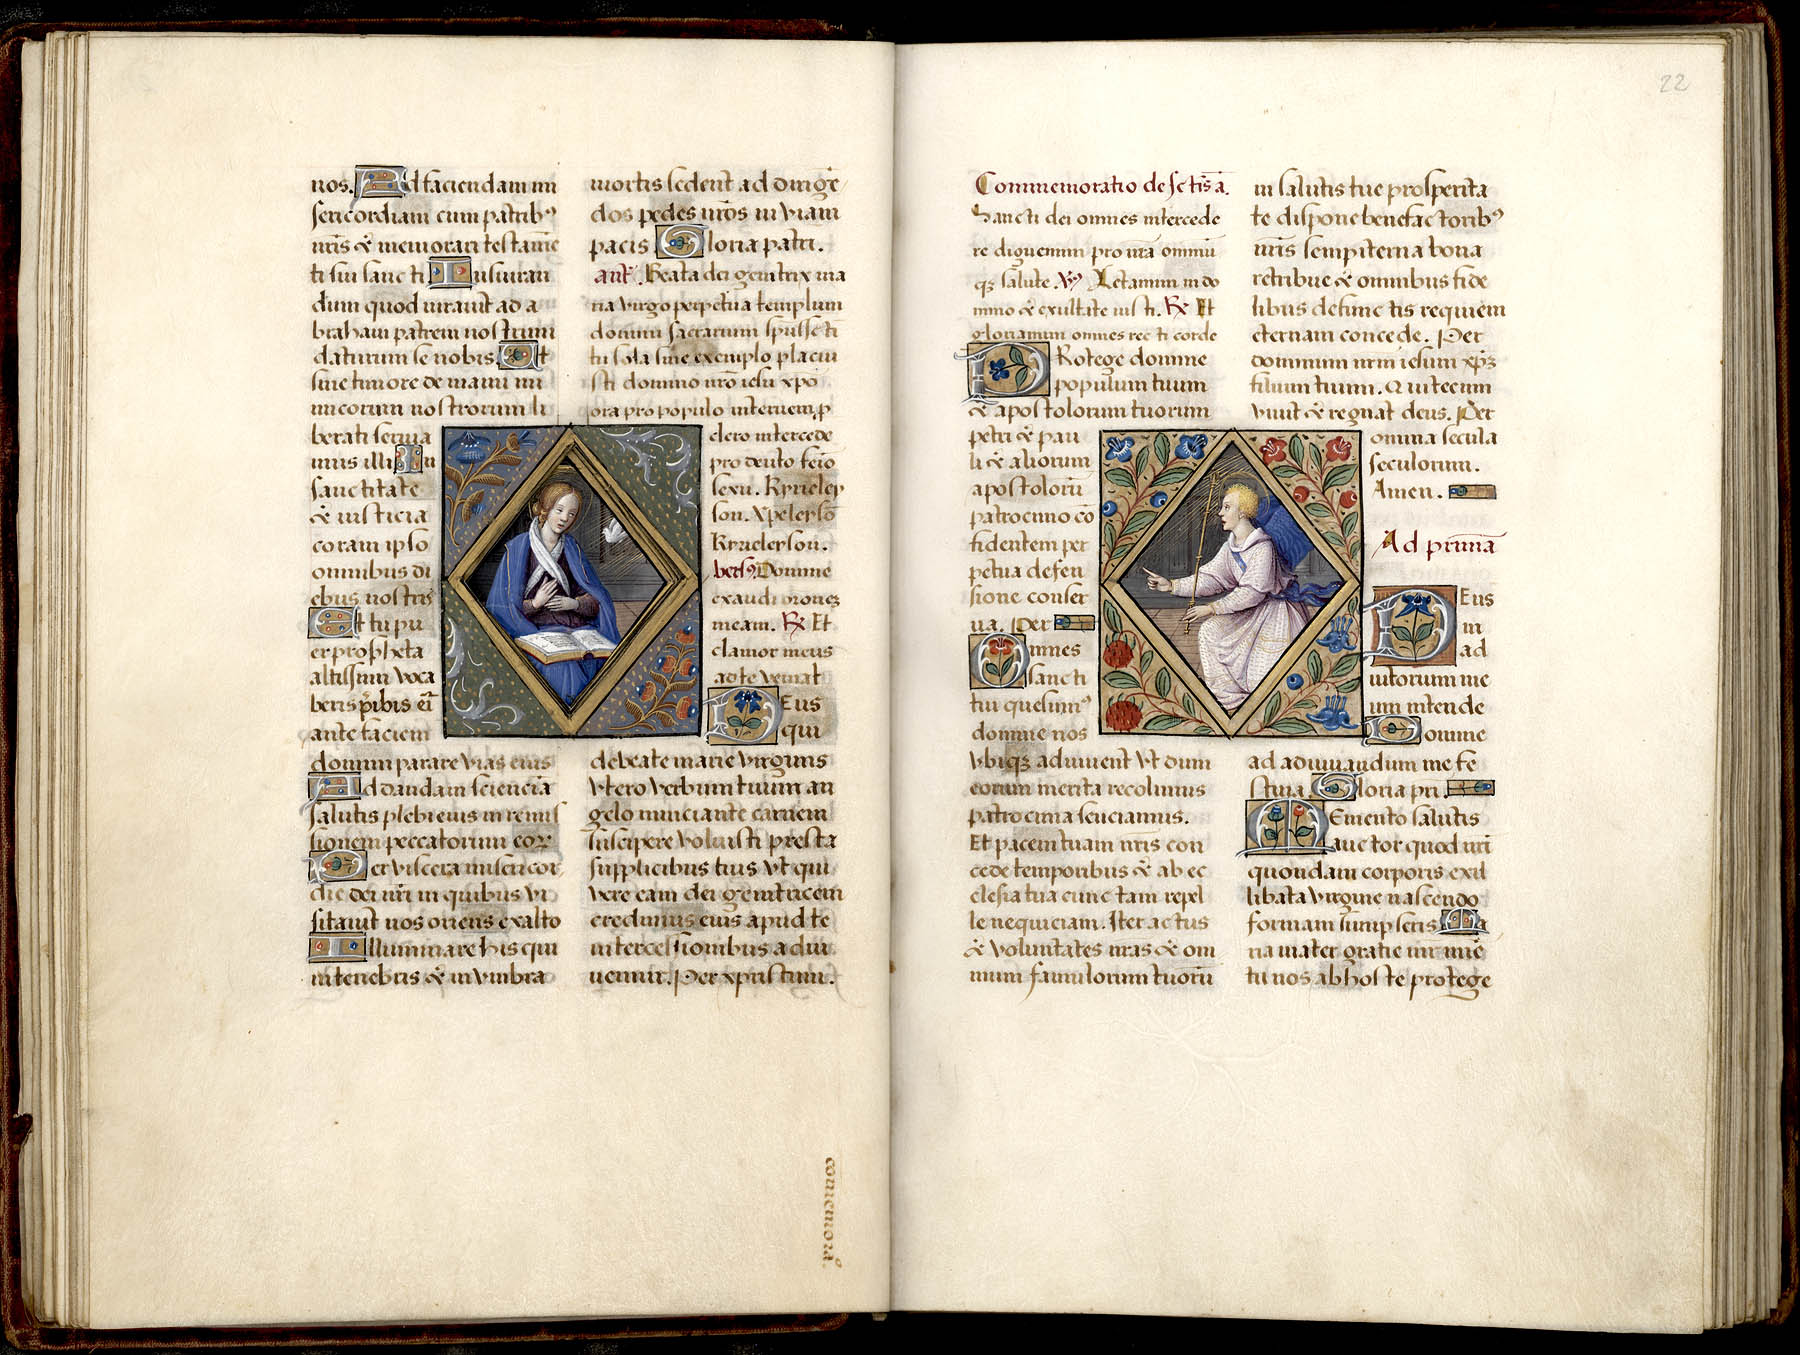 nos. Ad faciendam mi
sericordiam cum patrib⁹
nr̄is & memorari testamē
ti sui sancti Iusiuran
dum quod iurauit ad a
braham patrem nostrum
daturum se nobis. Ut
sine timore de manu ini
micorum nostrorum li
berati seruia
mus illi In
sanctitate
& iusticia
coram ipso
omnibus di
ebus nostris
Et tu pu
er propheta
altissimi voca
beris p̄ibis ei̅
ante faciem
domini parare vias eius
Ad dandam sciencia̅
salutis plebi eius in remis
sionem peccatorum eoꝝ
Per viscera misericor
die dei nr̄i in quibus vi
sitauit nos oriens ex alto
Illuminare his qui
in tenebris & in vmbra
mortis sedent ad dirigē
dos pedes nr̄os in viam
pacis Gloria patri.
ant̄. Beata dei genitrix ma
ria virgo perpetua templum
domini sacrarium sp̄ssctī
tu sola sine exemplo placui
sti domino nr̄o iesu xpō
ora pro populo interueni p̱
clero intercede
pro deuoto feīo
sexu. Kyrieley
son. Xpeleysō
Kyrieleyson.
vers⁹. Domine
exaudi oronez
meam. ℞ Et
clamor meus
ad te veniat
DEus
qui
de beate marie virginis
vtero verbum tuum an
gelo nunciante carnem
suscipere voluisti presta
supplicibus tuis vt qui
vere eam dei genitricem
credimus eius apud te
intercessionibus adiu
uemur. Per xpristum.
com̄emoraᵒ.
22
Commemoratio de sctīs ā.
Sancti dei omnes intercede
re dignemini pro nr̄a omniū
qꝫ salute ℣⁹ Letamini in do
mino & exultate iusti. ℞ Et
gloriamini omnes recti corde
PRotege domine
populum tuum
& apostolorum tuorum
petri & pau
li & aliorum
apostolorū
patrocinio cō
fidentem per
petua defen
sione conser
ua. Per
Omnes
sancti
tui quesum⁹
domine nos
vbiqꝫ adiuuent vt dum
eorum merita recolimus
patrocinia senciamus.
Et pacem tuam nr̄is con
cede temporibus & ab ec
clesia tua cunctam repel
le nequiciam. Iter actus
& voluntates nr̄as & om
nium famulorum tuorū
in salutis tue prosperita
te dispone benefactorib⁹
nr̄is sempiterna bona
retribue & omnibus fide
libus defunctis requiem
eternam concede. Per
dominum nr̄m iesum xp̄ꝫ
filium tuum. Qui tecum
viuit & regnat deus. Per
omnia secula
seculorum.
Amen.
Ad primā
DEus
in
ad
iutorium me
um intende
Domine
ad adiuuandum me fe
stina. Gloria pri.
Memento salutis
auctor quod nr̄i
quondam corporis exil
libata virgine nascendo
formam sumpseris Ma
ria mater gratie mr̄ mīe
tu nos ab hoste protege